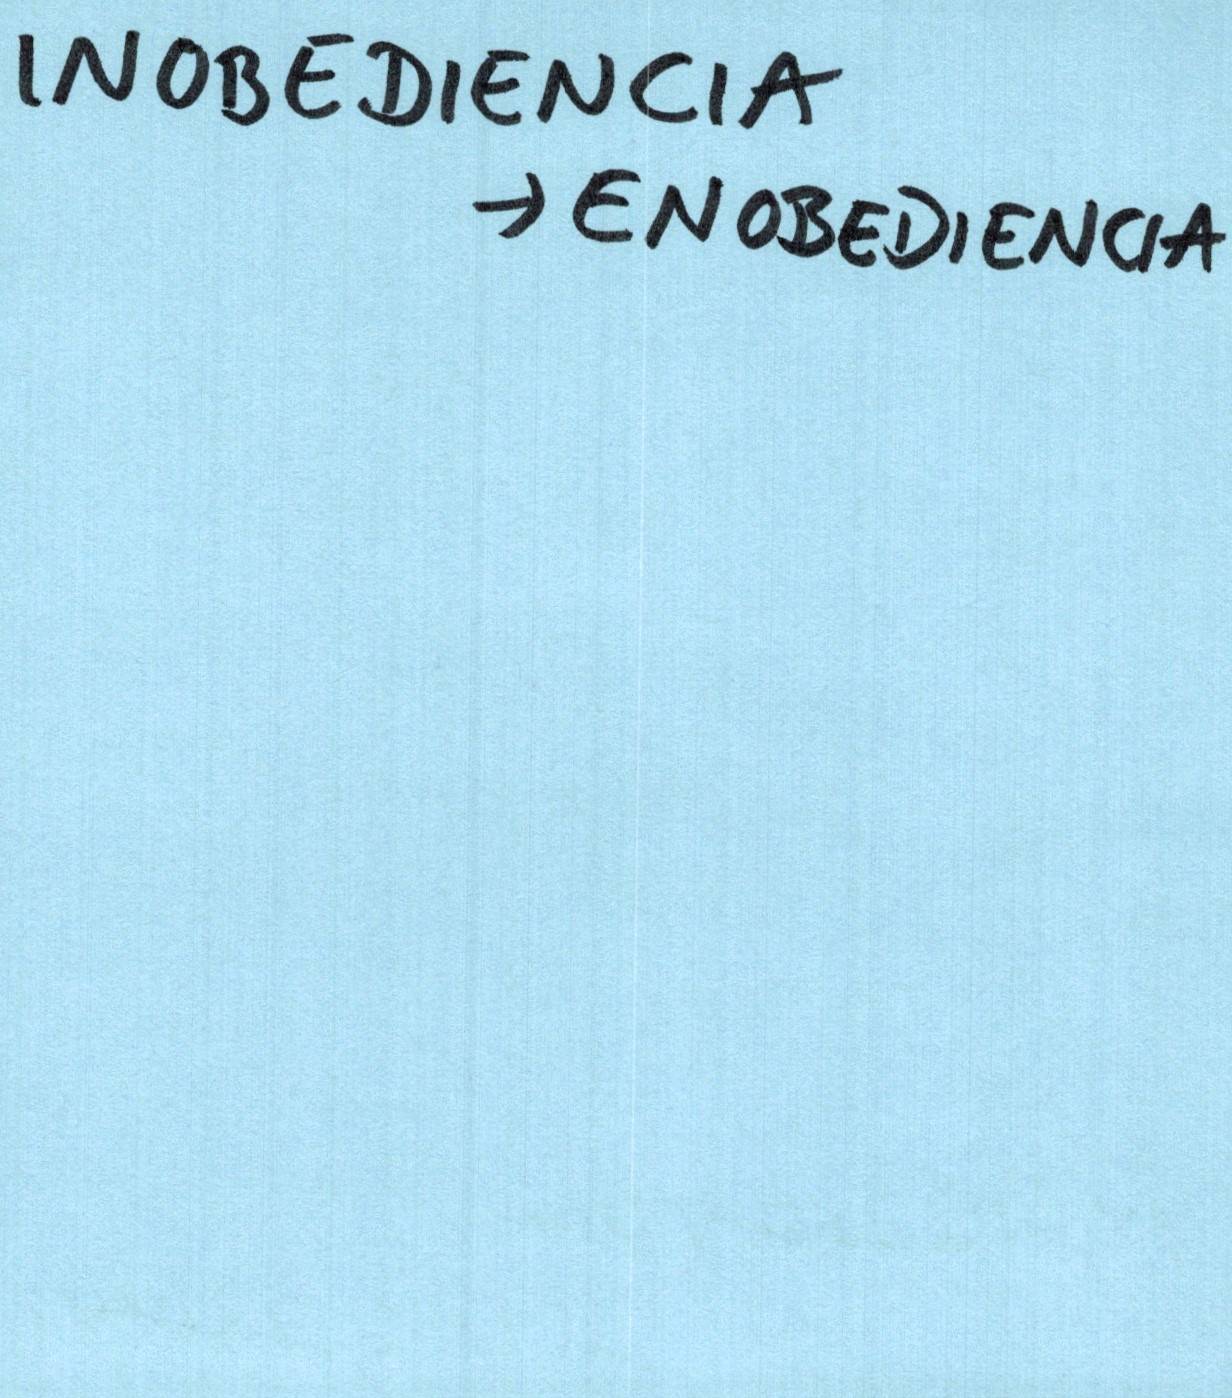 INOBEDIENCIA
→ ENOBEDIENCIA